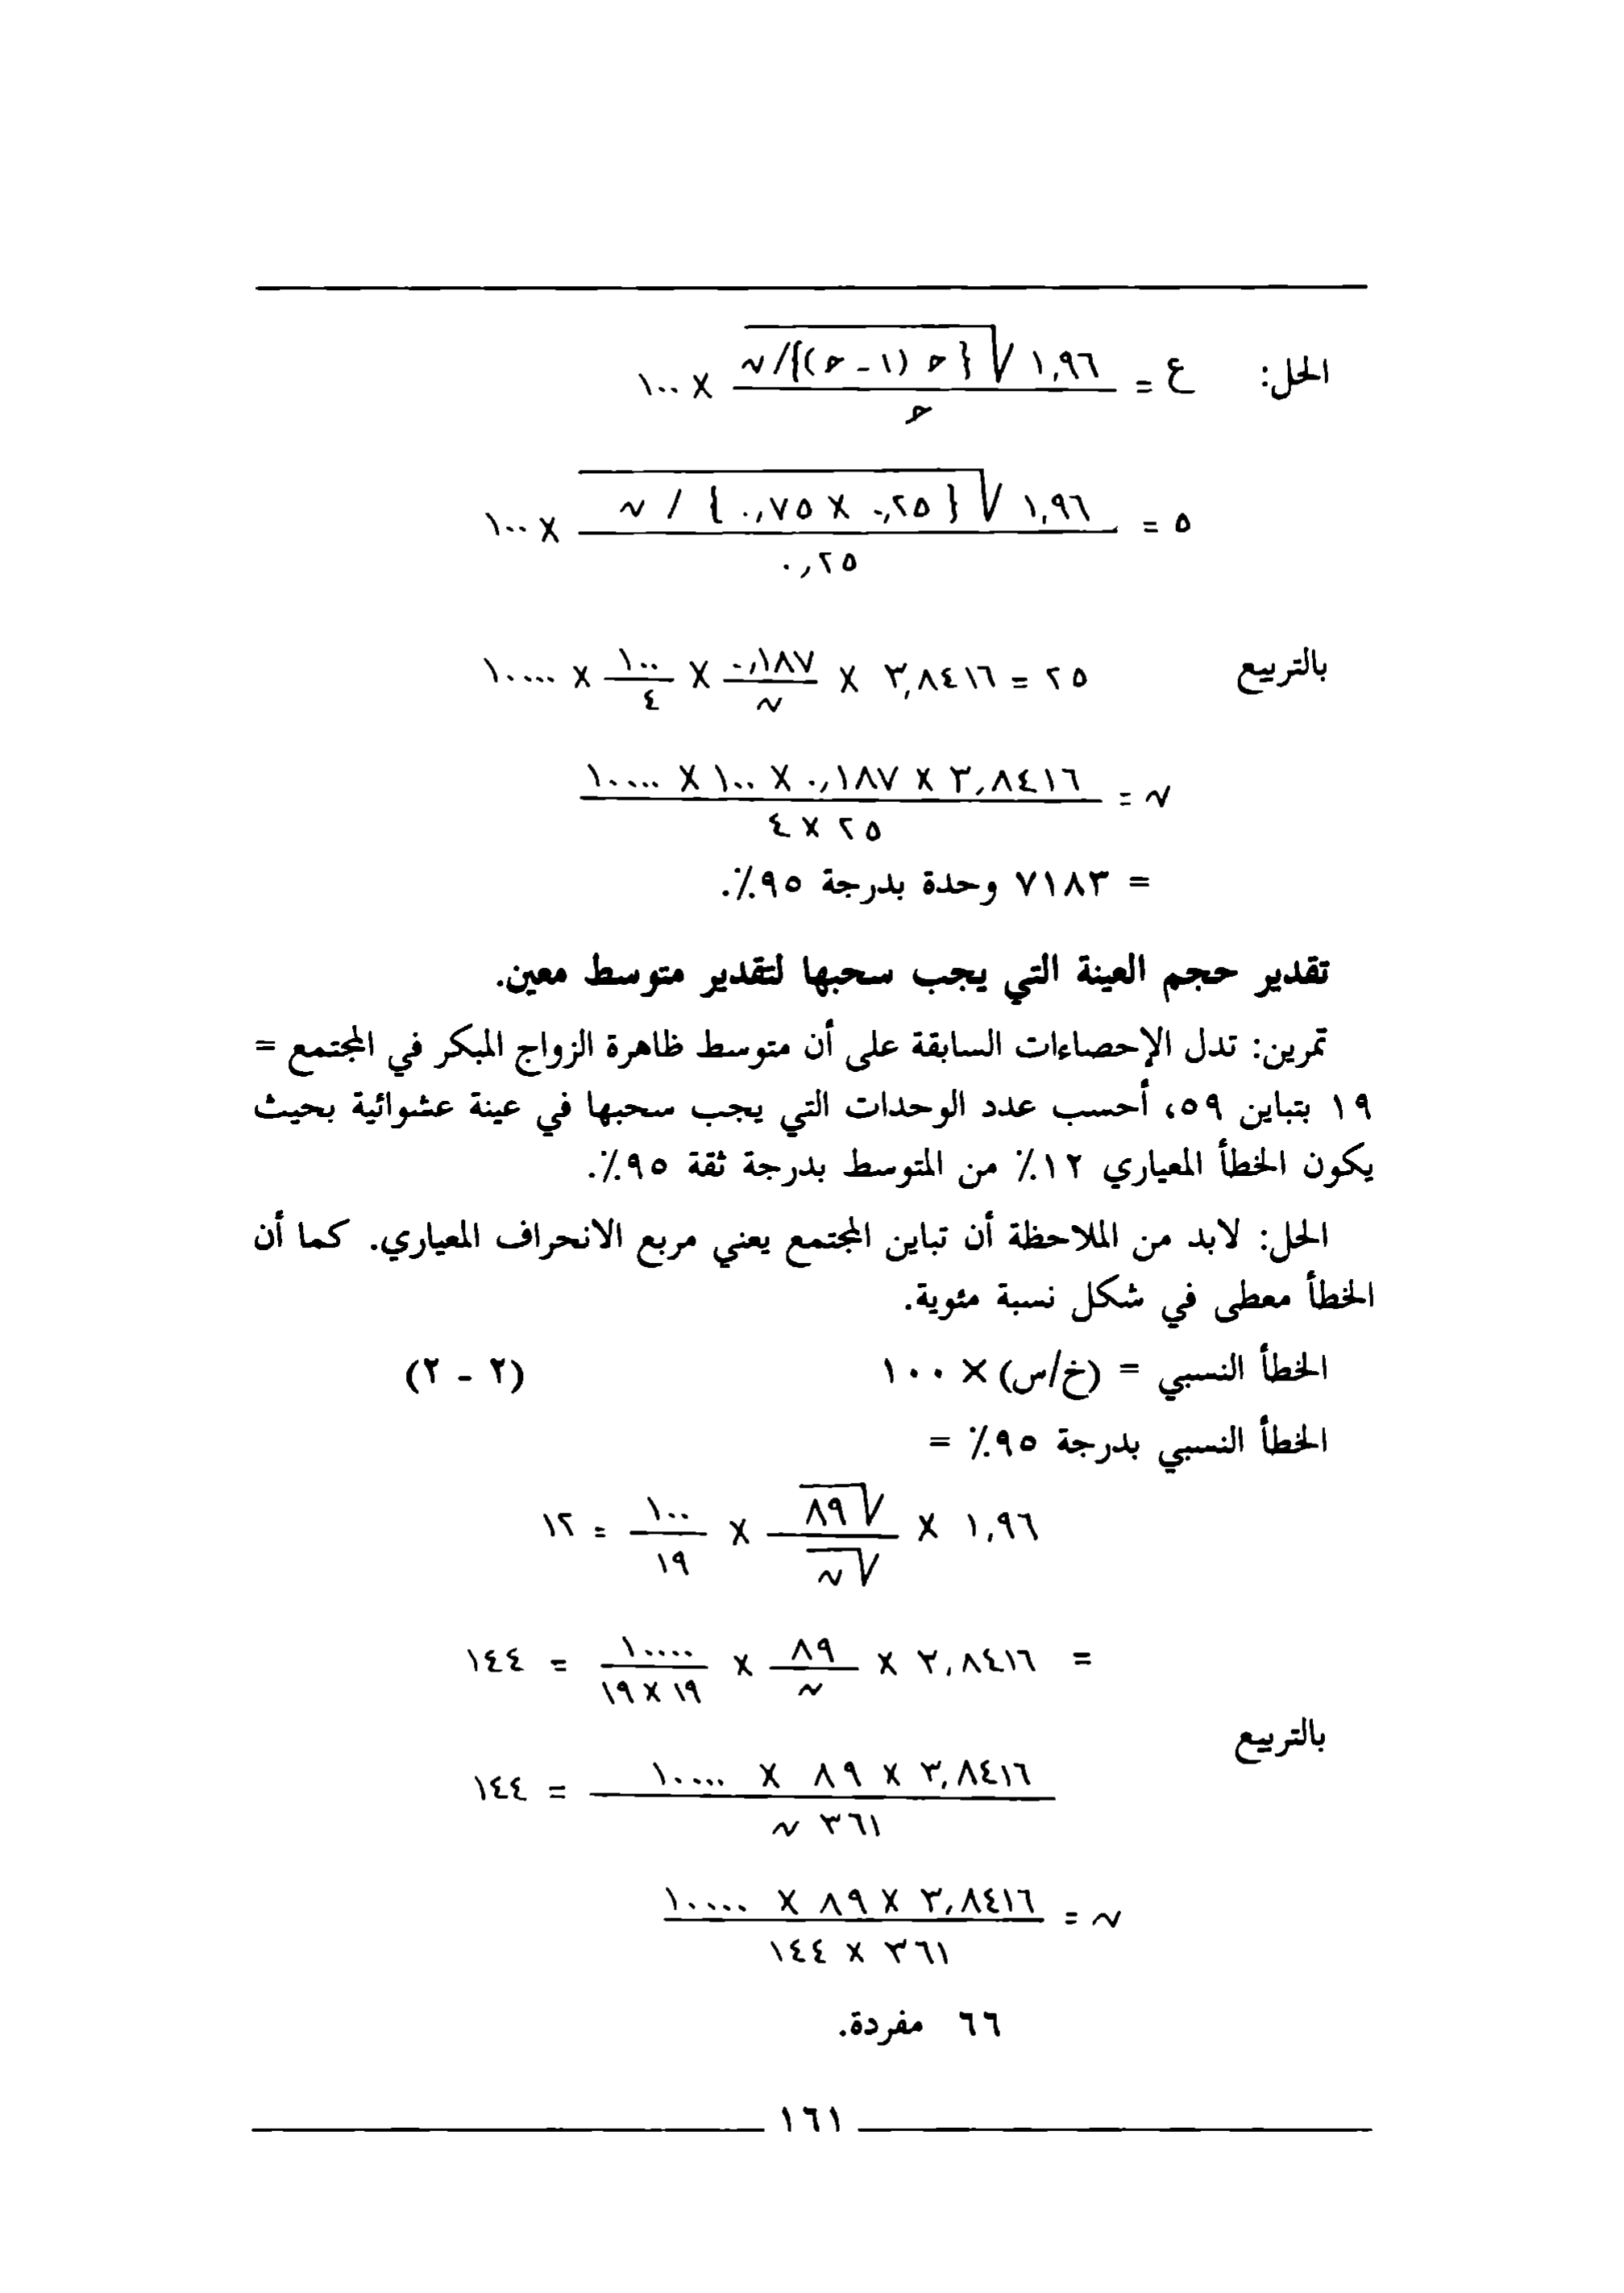 الحل: ع = ١,٩٦ √{م (١ - م)}/ن / م × ١٠٠
٥ = ١,٩٦ √{٠,٢٥ × ٠,٧٥} / ن / ٠,٢٥ × ١٠٠
بالتربيع ٢٥ = ٣,٨٤١٦ × ٠,١٨٧/ن × ١٠٠/٤ × ١٠٠٠٠
ن = ٣,٨٤١٦ × ٠,١٨٧ × ١٠٠ × ١٠٠٠٠ / ٢٥ × ٤
= ٧١٨٣ وحدة بدرجة ٩٥٪.
تقدير حجم العينة التي يجب سحبها لتقدير متوسط معين.
تمرين: تدل الإحصاءات السابقة على أن متوسط ظاهرة الزواج المبكر في المجتمع =
١٩ بتباين ٥٩، أحسب عدد الوحدات التي يجب سحبها في عينة عشوائية بحيث
يكون الخطأ المعياري ١٢٪ من المتوسط بدرجة ثقة ٩٥٪.
الحل: لابد من الملاحظة أن تباين المجتمع يعني مربع الانحراف المعياري. كما أن
الخطأ معطى في شكل نسبة مئوية.
الخطأ النسبي = (خ/س) × ١٠٠ (٢ - ٢)
الخطأ النسبي بدرجة ٩٥٪ =
١,٩٦ × √٨٩/√ن × ١٠٠/١٩ = ١٢
= ٣,٨٤١٦ × ٨٩/ن × ١٠٠٠٠/١٩×١٩ = ١٤٤
بالتربيع
٣,٨٤١٦ × ٨٩ × ١٠٠٠٠ / ٣٦١ ن = ١٤٤
ن = ٣,٨٤١٦ × ٨٩ × ١٠٠٠٠ / ٣٦١ × ١٤٤
٦٦ مفردة.
١٦١